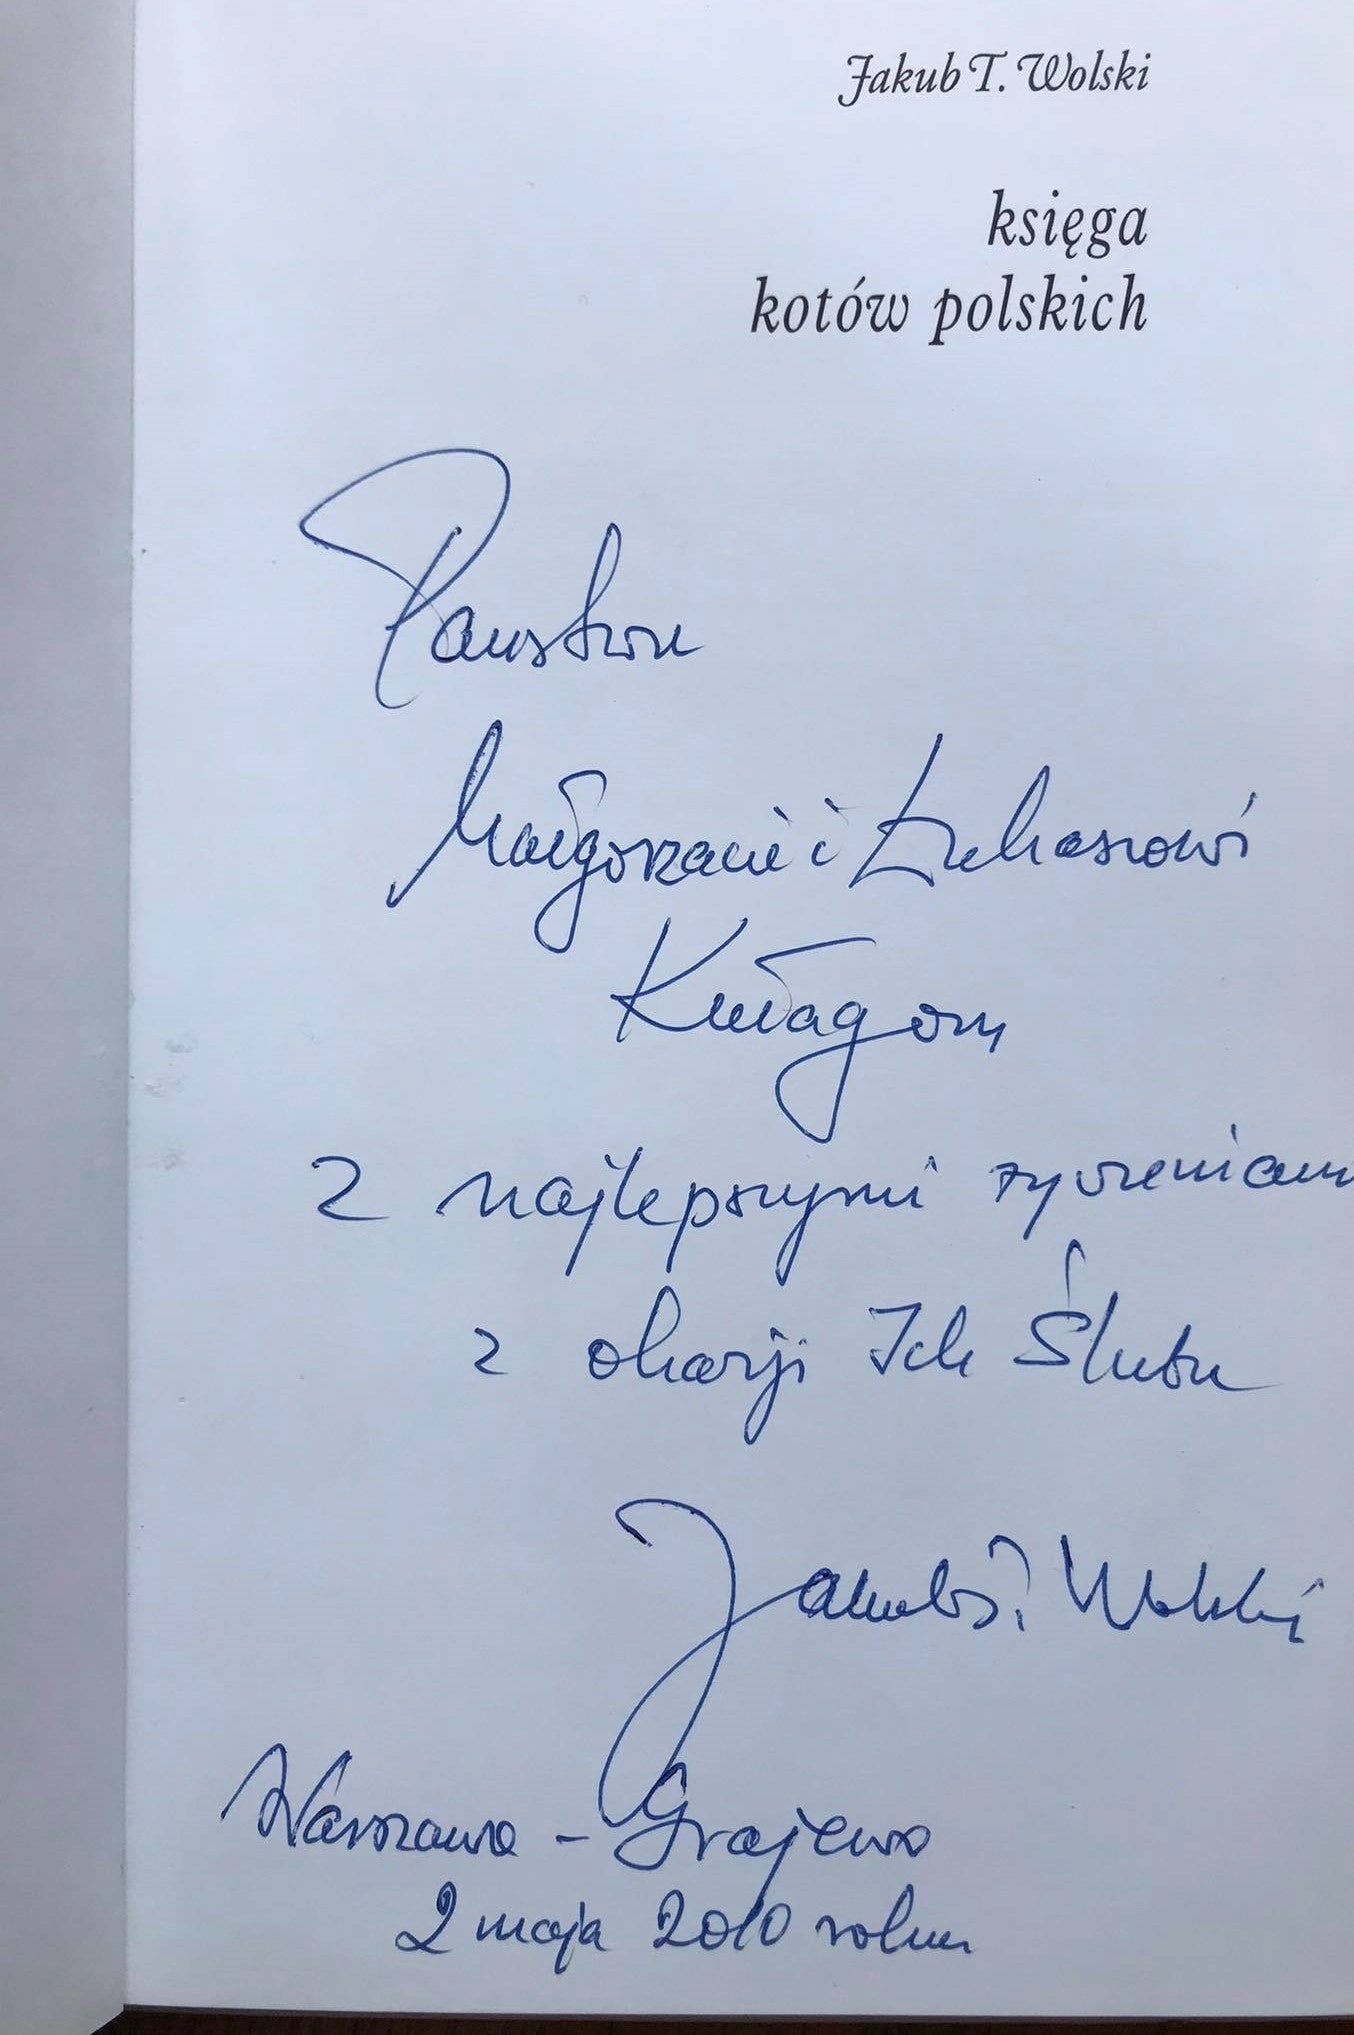 Jakub T. Wolski
księga
kotów polskich
Państwu
Małgorzacie i Łukaszowi
Kułagom
z najlepszymi życzeniami
z okazji Ich Ślubu
Jakub T. Wolski
Warszawa - Grajewo
2 maja 2010 roku